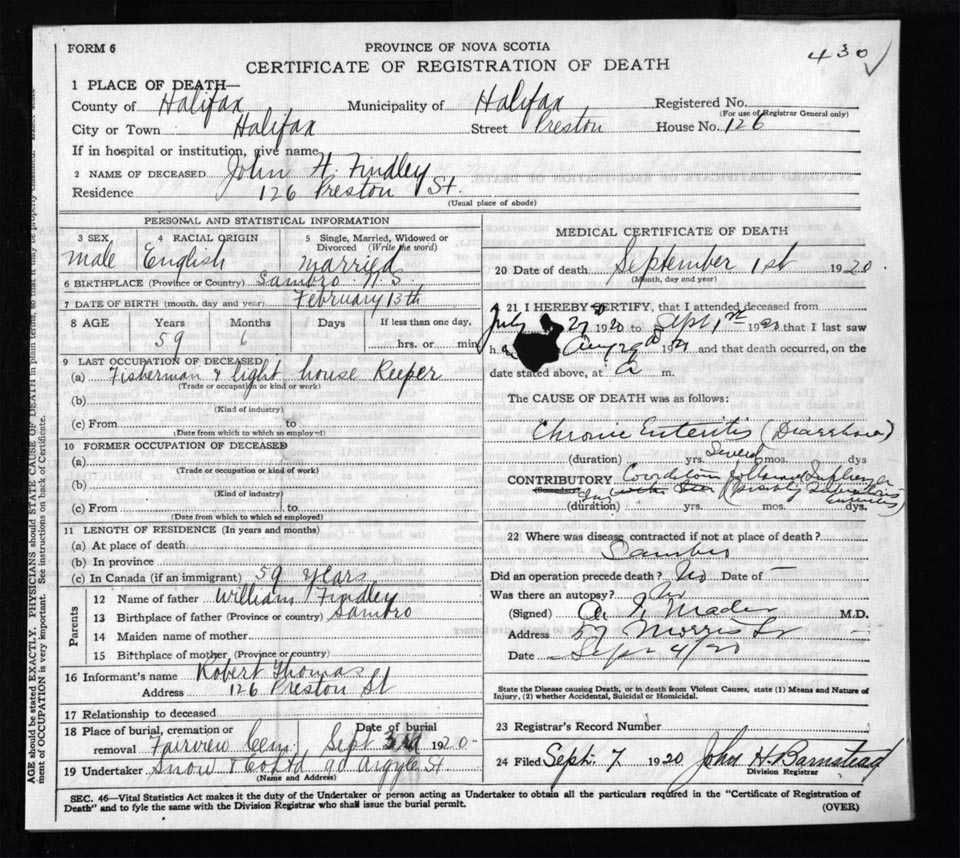 FORM 6
PROVINCE OF NOVA SCOTIA
430 ✓
CERTIFICATE OF REGISTRATION OF DEATH
1 PLACE OF DEATH—
County of Halifax Municipality of Halifax Registered No.
(For use of Registrar General only)
City or Town Halifax Street Preston House No. 126
If in hospital or institution, give name
2 NAME OF DECEASED John H. Findley
Residence 126 Preston St.
(Usual place of abode)
PERSONAL AND STATISTICAL INFORMATION
3 SEX 4 RACIAL ORIGIN 5 Single, Married, Widowed or Divorced (Write the word)
Male English Married
6 BIRTHPLACE (Province or Country) Sambro N.S.
7 DATE OF BIRTH (month, day and year) February 13th
8 AGE Years Months Days If less than one day,
59 6 hrs. or min
9 LAST OCCUPATION OF DECEASED
(a) Fisherman & light house Keeper
(Trade or occupation or kind of work)
(b)
(Kind of industry)
(c) From to
(Date from which to which so employed)
10 FORMER OCCUPATION OF DECEASED
(a)
(Trade or occupation or kind of work)
(b)
(Kind of industry)
(c) From to
(Date from which to which so employed)
11 LENGTH OF RESIDENCE (In years and months)
(a) At place of death
(b) In province
(c) In Canada (if an immigrant) 59 years
Parents
12 Name of father William Findley
13 Birthplace of father (Province or country) Sambro
14 Maiden name of mother
15 Birthplace of mother (Province or country)
16 Informant's name Robert Thomas
Address 126 Preston St
17 Relationship to deceased
18 Place of burial, cremation or removal Fairview Cem. Date of burial Sept 1920
19 Undertaker Snow & Co Ltd 90 Argyle St
(Name and Address)
MEDICAL CERTIFICATE OF DEATH
20 Date of death September 1st 1920
(Month, day and year)
21 I HEREBY CERTIFY, that I attended deceased from
July 27 1920 to Sept 1st 1920 that I last saw
h Aug 29th and that death occurred, on the
date stated above, at a m.
The CAUSE OF DEATH was as follows:
Chronic Enteritis (Diarrhoea)
(duration) yrs. Several mos. dys
CONTRIBUTORY Condition following Influenza
(duration) yrs. mos. dys.
22 Where was disease contracted if not at place of death?
Sambro
Did an operation precede death? No Date of —
Was there an autopsy? No
(Signed) Mader M.D.
Address 57 Morris St
Date Sept 4/20
State the Disease causing Death, or in death from Violent Causes, state (1) Means and Nature of
Injury, (2) whether Accidental, Suicidal or Homicidal.
23 Registrar's Record Number
24 Filed Sept. 7 1920 John H. Barnstead
Division Registrar
SEC. 46—Vital Statistics Act makes it the duty of the Undertaker or person acting as Undertaker to obtain all the particulars required in the "Certificate of Registration of
Death" and to fyle the same with the Division Registrar who shall issue the burial permit.
(OVER)
AGE should be stated EXACTLY. PHYSICIANS should STATE CAUSE OF DEATH in plain terms, so that it may be properly classified.
ment of OCCUPATION is very important. See instructions on back of Certificate.